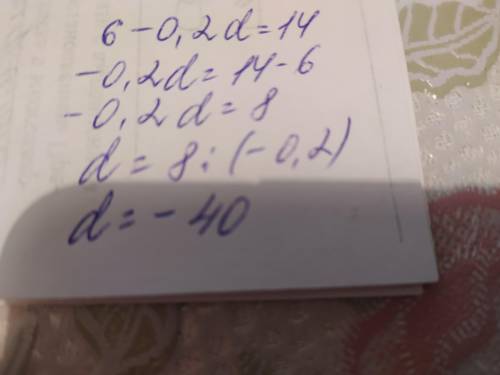 6 - 0,2d = 14
-0,2d = 14 - 6
-0,2d = 8
d = 8 : (-0,2)
d = - 40